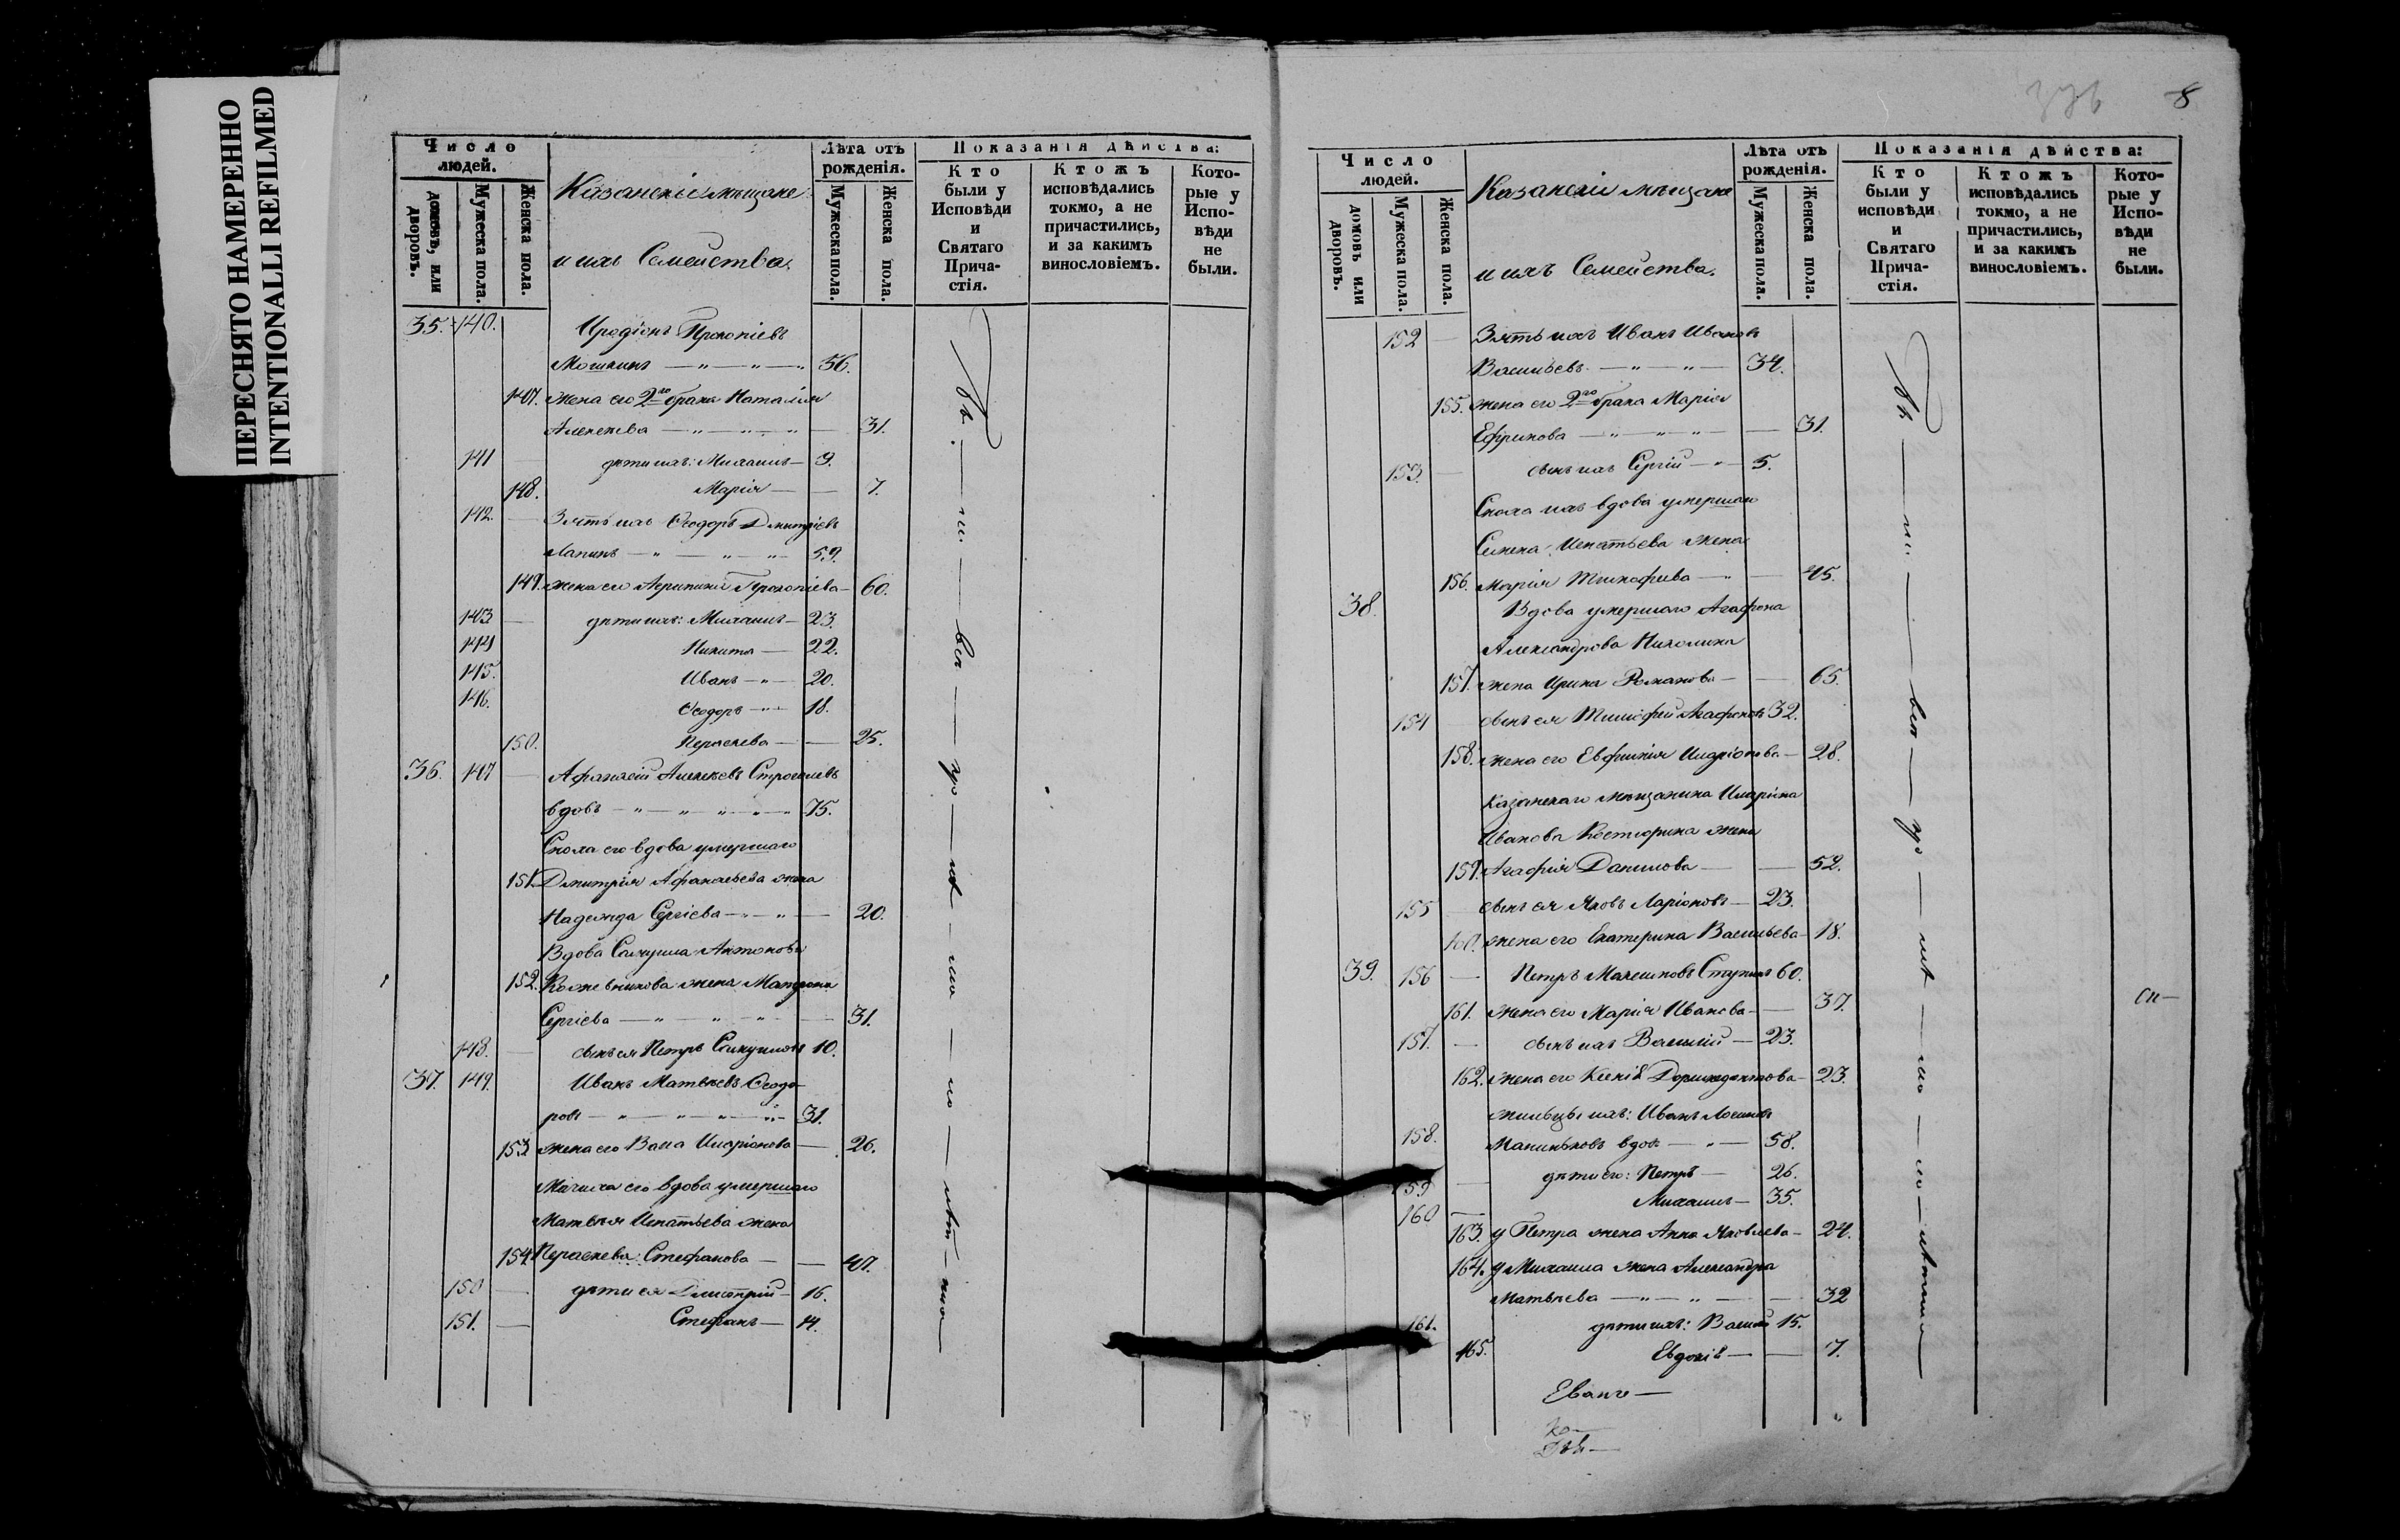 ПЕРЕСНЯТО НАМЕРЕННО
INTENTIONALLI REFILMED
Число людей.
домовъ, или дворовъ.
Мужеска пола.
Женска пола.
Казанскіе мѣщане
и ихъ Семейства.
Лѣта отъ рожденія.
Мужеска пола.
Женска пола.
Показанія дѣйства:
Кто были у Исповѣди и Святаго Прича-стія.
Ктожъ исповѣдались токмо, а не причастились, и за какимъ винословіемъ.
Кото-рые у Испо-вѣди не были.
35. 140. Иродіонъ Прокопіевъ
Мошкинъ 56.
147. жена его 2го брака Наталія
Алексѣева 31.
141 дѣти ихъ: Михаилъ 9.
148. Марія 7.
142. Зять ихъ Ѳеодоръ Дмитріевъ
Лапинъ 59.
149. жена его Агрипина Прокопіева 60.
143 дѣти ихъ: Михаилъ 23.
144 Никита 22.
145. Иванъ 20.
146. Ѳеодоръ 18.
150. Параскева 25.
36. 147 Афанасій Алексѣевъ
вдовъ 75.
Сноха его вдова умершаго
151. Дмитрія Афанасьева жена
Надежда Сергіева 20.
Вдова Самуила Антонова
152. Кожевникова жена Матрона
Сергіева 31.
148. сынъ ея Петръ Самуиловъ 10.
37. 149. Иванъ Матвѣевъ Ѳеодо-
ровъ 31.
153 жена его Васса Иларіонова 26.
Мачиха его вдова умершаго
Матвѣя Игнатьева жена
154 Параскева Стефанова 47.
150 дѣти ея Димитрій 16.
151. Стефанъ 14.
8
Число людей.
домовъ или дворовъ.
Мужеска пола.
Женска пола.
Казанскіи мѣщане
и ихъ Семейства.
Лѣта отъ рожденія.
Мужеска пола.
Женска пола.
Показанія дѣйства:
Кто были у исповѣди и Святаго Прича-стія.
Ктожъ исповѣдались токмо, а не причастились, и за какимъ винословіемъ.
Кото-рые у Испо-вѣди не были.
152 Зять ихъ Иванъ Ивановъ
Васильевъ 34.
155. жена его 2го брака Марія
Ефимова 31.
153. сынъ ихъ Сергій 5.
Сноха ихъ вдова умершаго
Семена Игнатьева жена
156. Марія 45.
38. Вдова умершаго Агафона
Александрова Николина
157. жена Ирина Романова 65.
154 сынъ ея Тимофей Агафоновъ 32.
158. жена его Евфимія Иларіонова 28.
Казанскаго мѣщанина Иларіона
Иванова Костюрина жена
159. Агафія Данилова 52.
155 сынъ ея Яковъ Ларіоновъ 23.
160. жена его Екатерина Васильева 18.
39. 156 Петръ Ступинъ 60.
161. жена его Марія Иванова 37.
157. сынъ ихъ Василій 23.
162. жена его Ксенія Дормидонтова 23.
жильцы ихъ: Иванъ
158. вдовъ 58.
59 дѣти его: Петръ 26.
160 Михаилъ 35.
163. у Петра жена Анна Яковлева 24.
164. у Михаила жена Александра
Матвѣева 32
161. дѣти ихъ: Василій 15.
165. Евдокія 7.